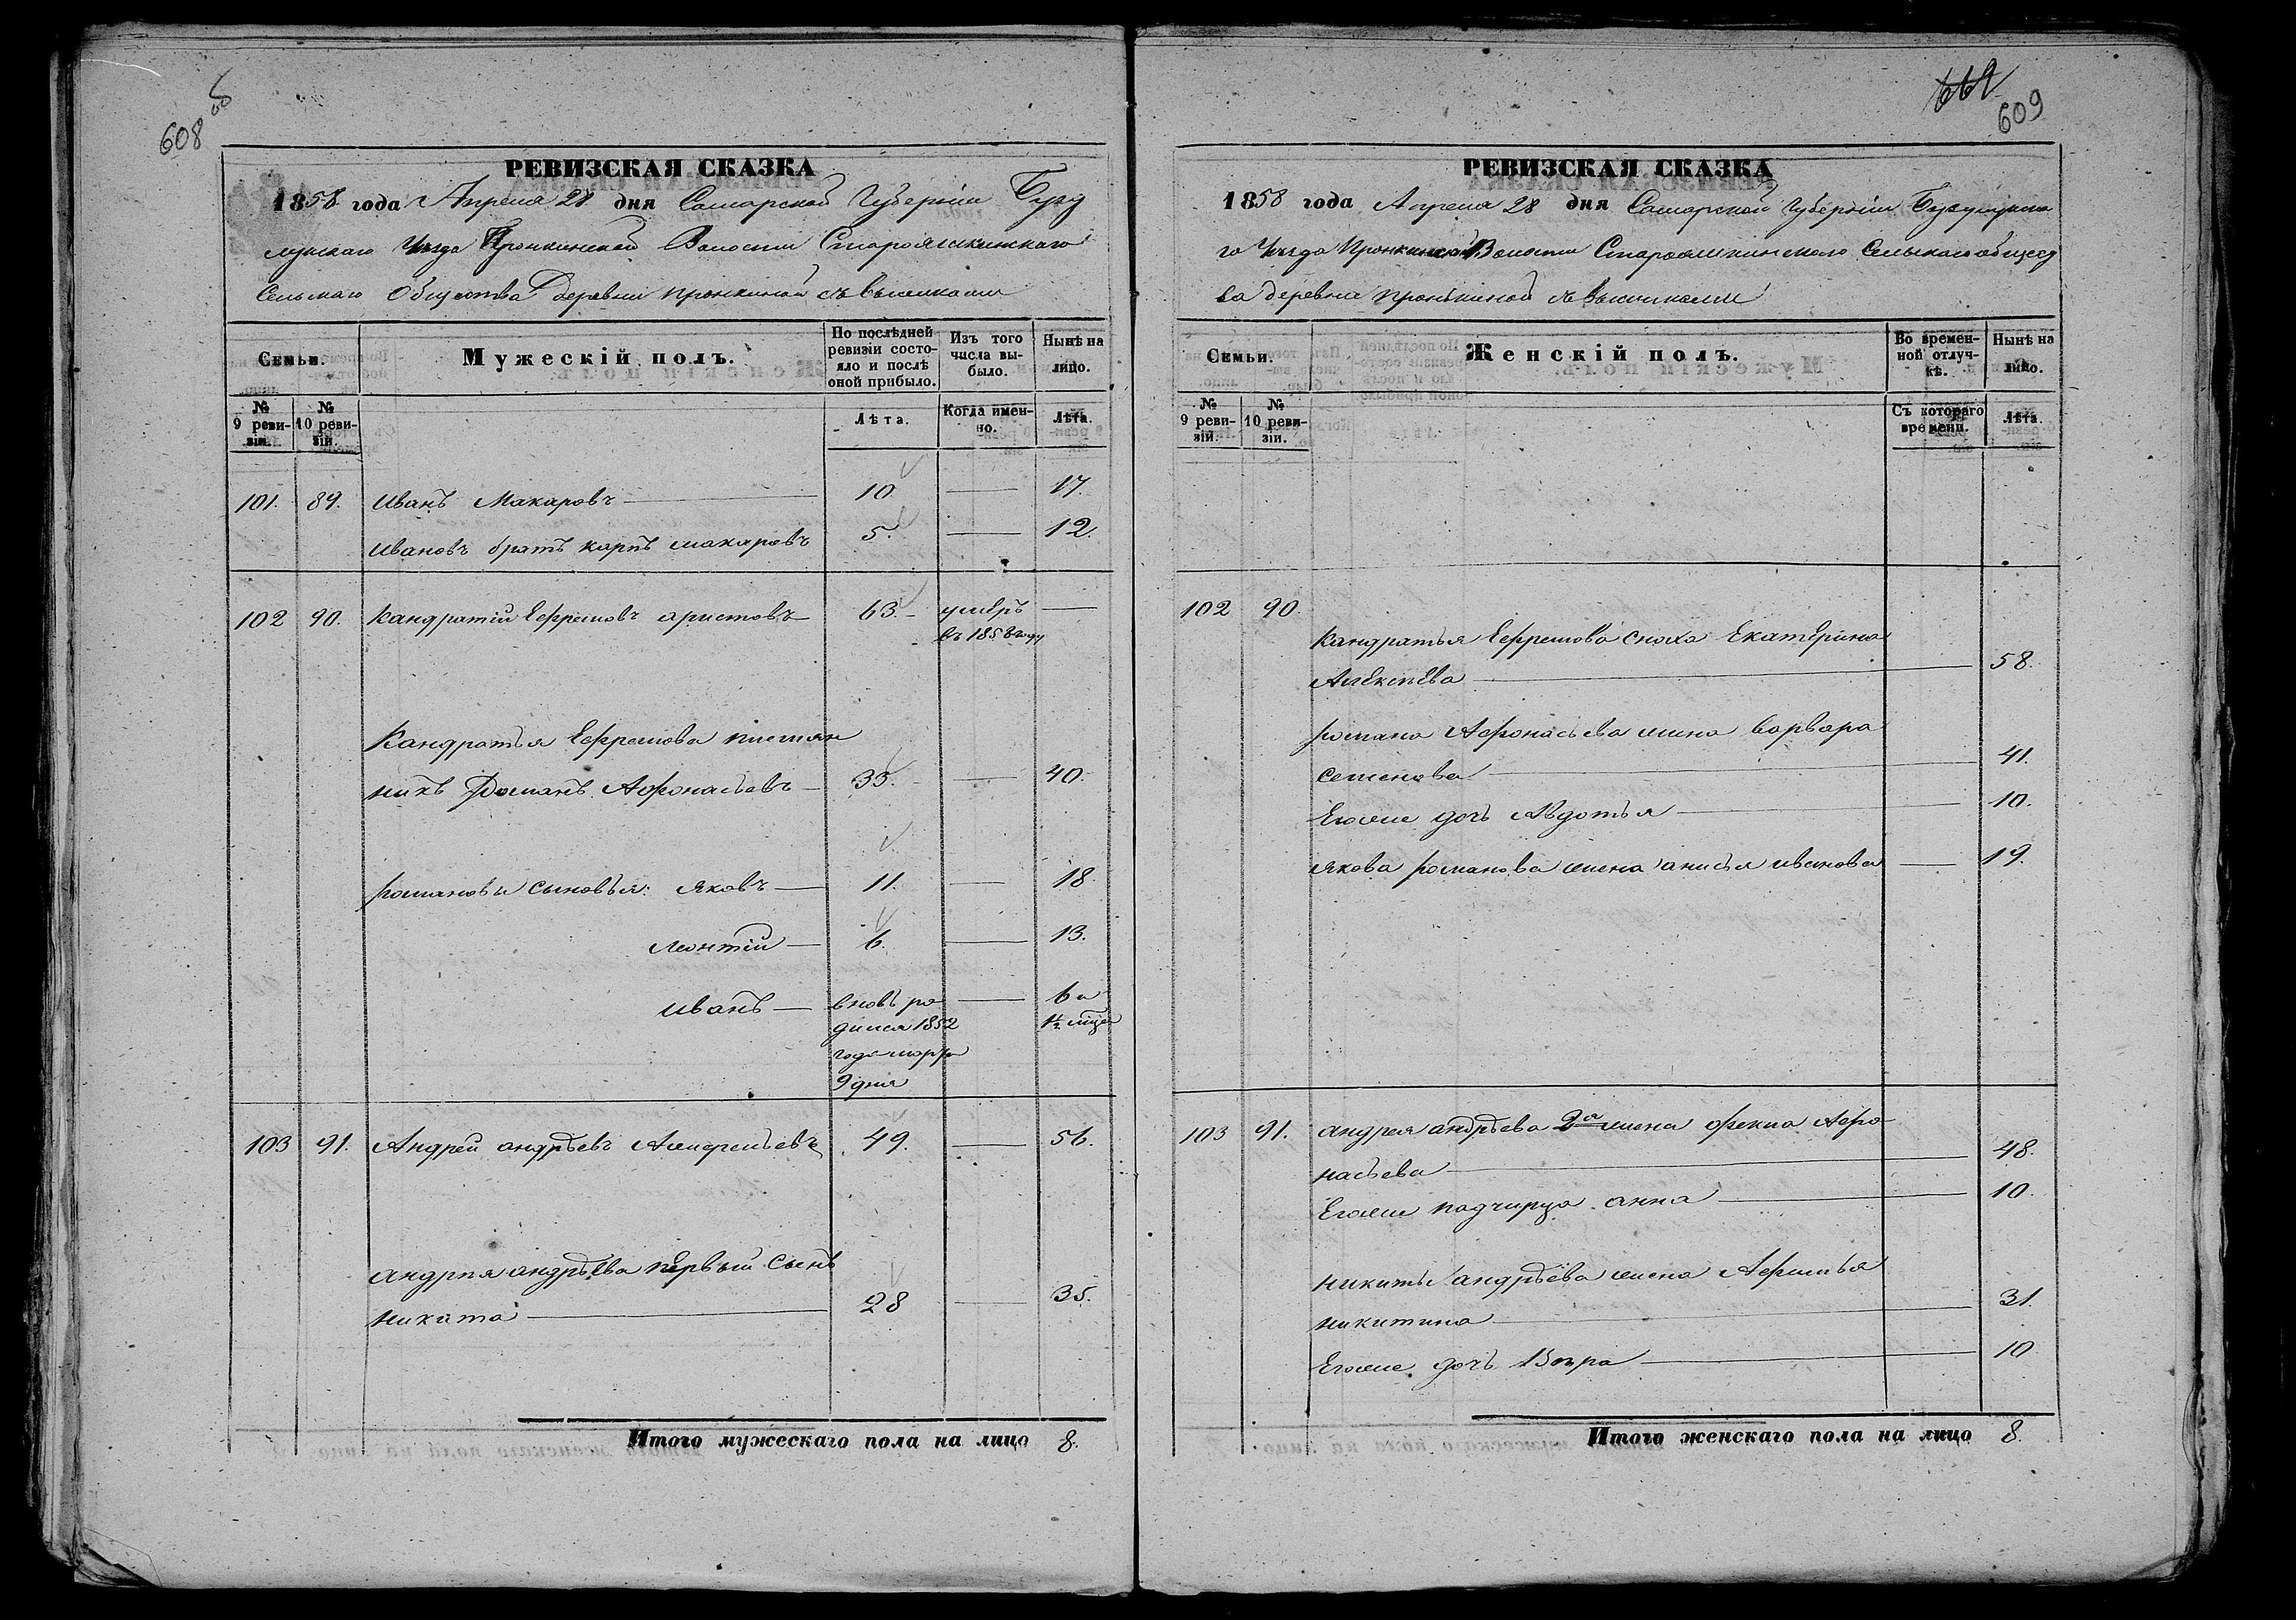 608 об
РЕВИЗСКАЯ СКАЗКА
1858 года Апреля 28 дня Самарской Губернiи Бузу
лукскаго Уезда Пронкинской Волости Старояшкинскаго
Сельскаго Общества Деревни пронкиной съ выселками
Семьи.
Мужескiй полъ.
По послѣдней ревизiи состояло и послѣ оной прибыло.
Изъ того числа выбыло.
Нынѣ на лицо.
№ 9 ревизiи.
№ 10 ревизiи.
Лѣта.
Когда именно.
Лѣта.
101. 89. Иванъ Макаровъ 10. 17.
Ивановъ братъ карпъ макаровъ 5. 12.
102 90. Кандратiй Ефремовъ аристовъ 63. умеръ
въ 1853 году
Кандратья Ефремова племян
никъ Романъ Афонасьевъ 33. 40.
романовы сыновья: Яковъ 11. 18.
Леонтiй 6. 13.
Иванъ вновь ро 6 и
дился 1852 1½ мѣся
года марта
9 дня
103 91. Андрей андрѣевъ 49. 56.
андрея андрѣева первый сынъ
никита 28 35.
Итого мужескаго пола на лицо 8.
609
РЕВИЗСКАЯ СКАЗКА
1858 года Апреля 28 дня Самарской Губернiи Бузулукска
го Уезда Пронкинской Волости Старояшкинскаго Сельскаго общест
ва деревни пронкиной съ Выселками
Семьи.
Женскiй полъ.
Во временной отлучкѣ.
Нынѣ на лицо.
№ 9 ревизiи.
№ 10 ревизiи.
Съ котораго времени.
Лѣта.
102 90.
Кандратья Ефремова сноха Екатерина
Алексѣева 58.
романа Афонасьева жена варвара
семенова 41.
Егоже дочь Авдотья 10.
якова романова жена анисья иванова 19.
103 91. андрея андрѣева 2я жена фекла Афо-
насьева 48.
Егоже падчирца анна 10.
никиты андрѣева жена Афимья
никитина 31.
Егоже дочь 10
Итого женскаго пола на лицо 8.